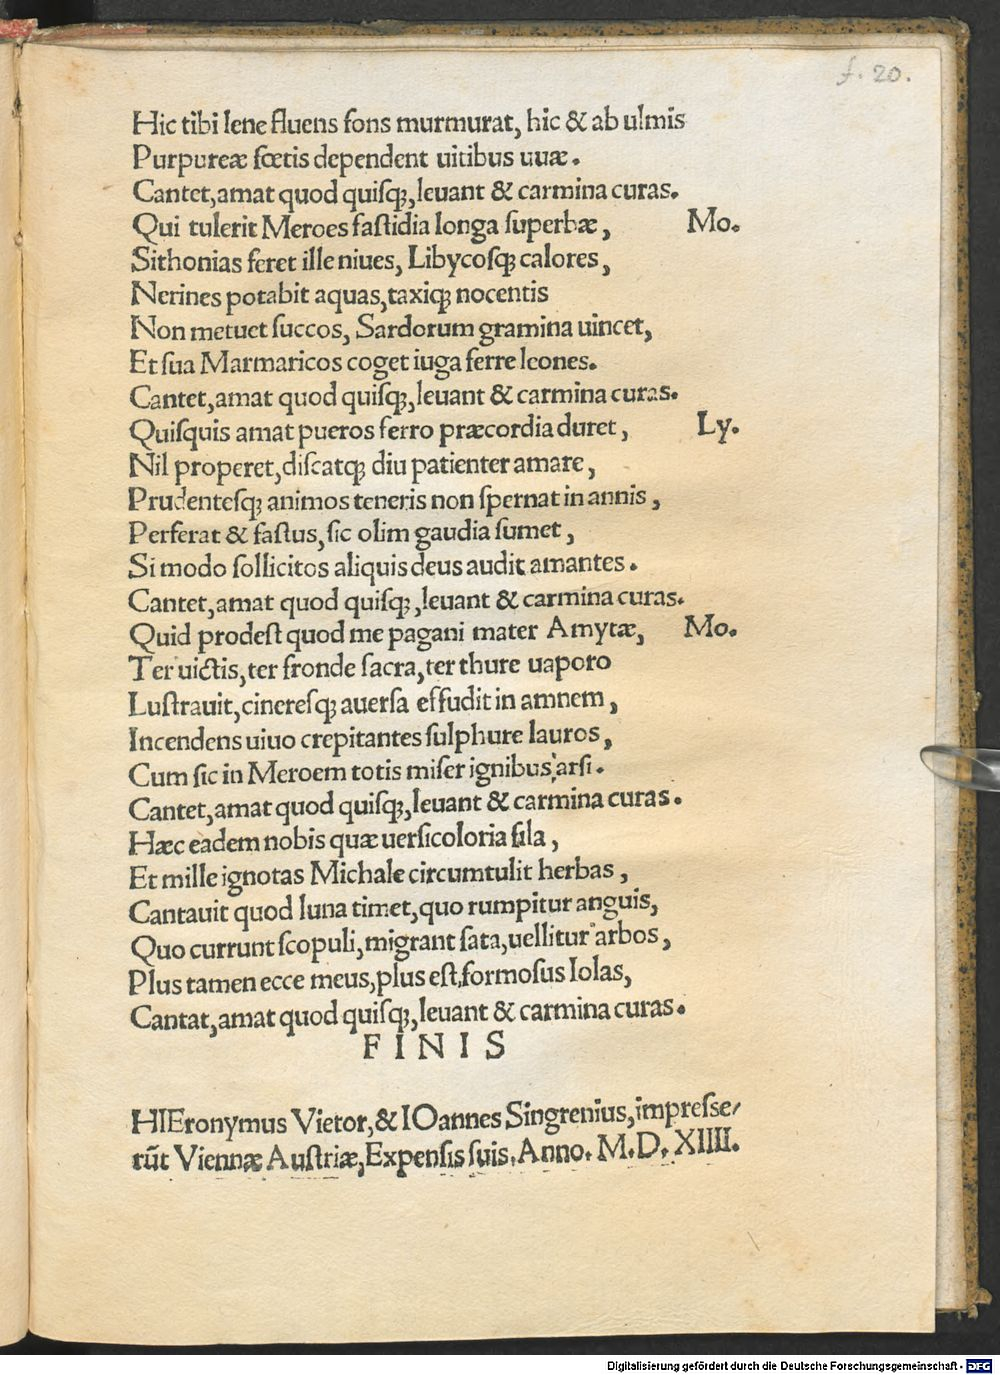 f. 20.
Hic tibi lene fluens fons murmurat, hic & ab ulmis
Purpureæ fœtis dependent uitibus uuæ.
Cantet, amat quod quisq;, leuant & carmina curas.
Qui tulerit Meroes fastidia longa superbæ, Mo.
Sithonias feret ille niues, Libycosq; calores,
Nerines potabit aquas, taxiq; nocentis
Non metuet succos, Sardorum gramina uincet,
Et sua Marmaricos coget iuga ferre leones.
Cantet, amat quod quisq;, leuant & carmina curas.
Quisquis amat pueros ferro præcordia duret, Ly.
Nil properet, discatq; diu patienter amare,
Prudentesq; animos teneris non spernat in annis,
Perferat & fastus, sic olim gaudia sumet,
Si modo sollicitos aliquis deus audit amantes.
Cantet, amat quod quisq;, leuant & carmina curas.
Quid prodest quod me pagani mater Amytæ, Mo.
Ter uictis, ter fronde sacra, ter thure uaporo
Lustrauit, cineresq; auersa effudit in amnem,
Incendens uiuo crepitantes sulphure lauros,
Cum sic in Meroem totis miser ignibus arsi.
Cantet, amat quod quisq;, leuant & carmina curas.
Hæc eadem nobis quæ uersicoloria fila,
Et mille ignotas Michale circumtulit herbas,
Cantauit quod luna timet, quo rumpitur anguis,
Quo currunt scopuli, migrant sata, uellitur arbos,
Plus tamen ecce meus, plus est, formosus Iolas,
Cantat, amat quod quisq;, leuant & carmina curas.
FINIS
HIEronymus Vietor, & IOannes Singrenius, impresse/
rũt Viennæ Austriæ, Expensis suis. Anno. M.D.XIIII.
Digitalisierung gefördert durch die Deutsche Forschungsgemeinschaft - DFG